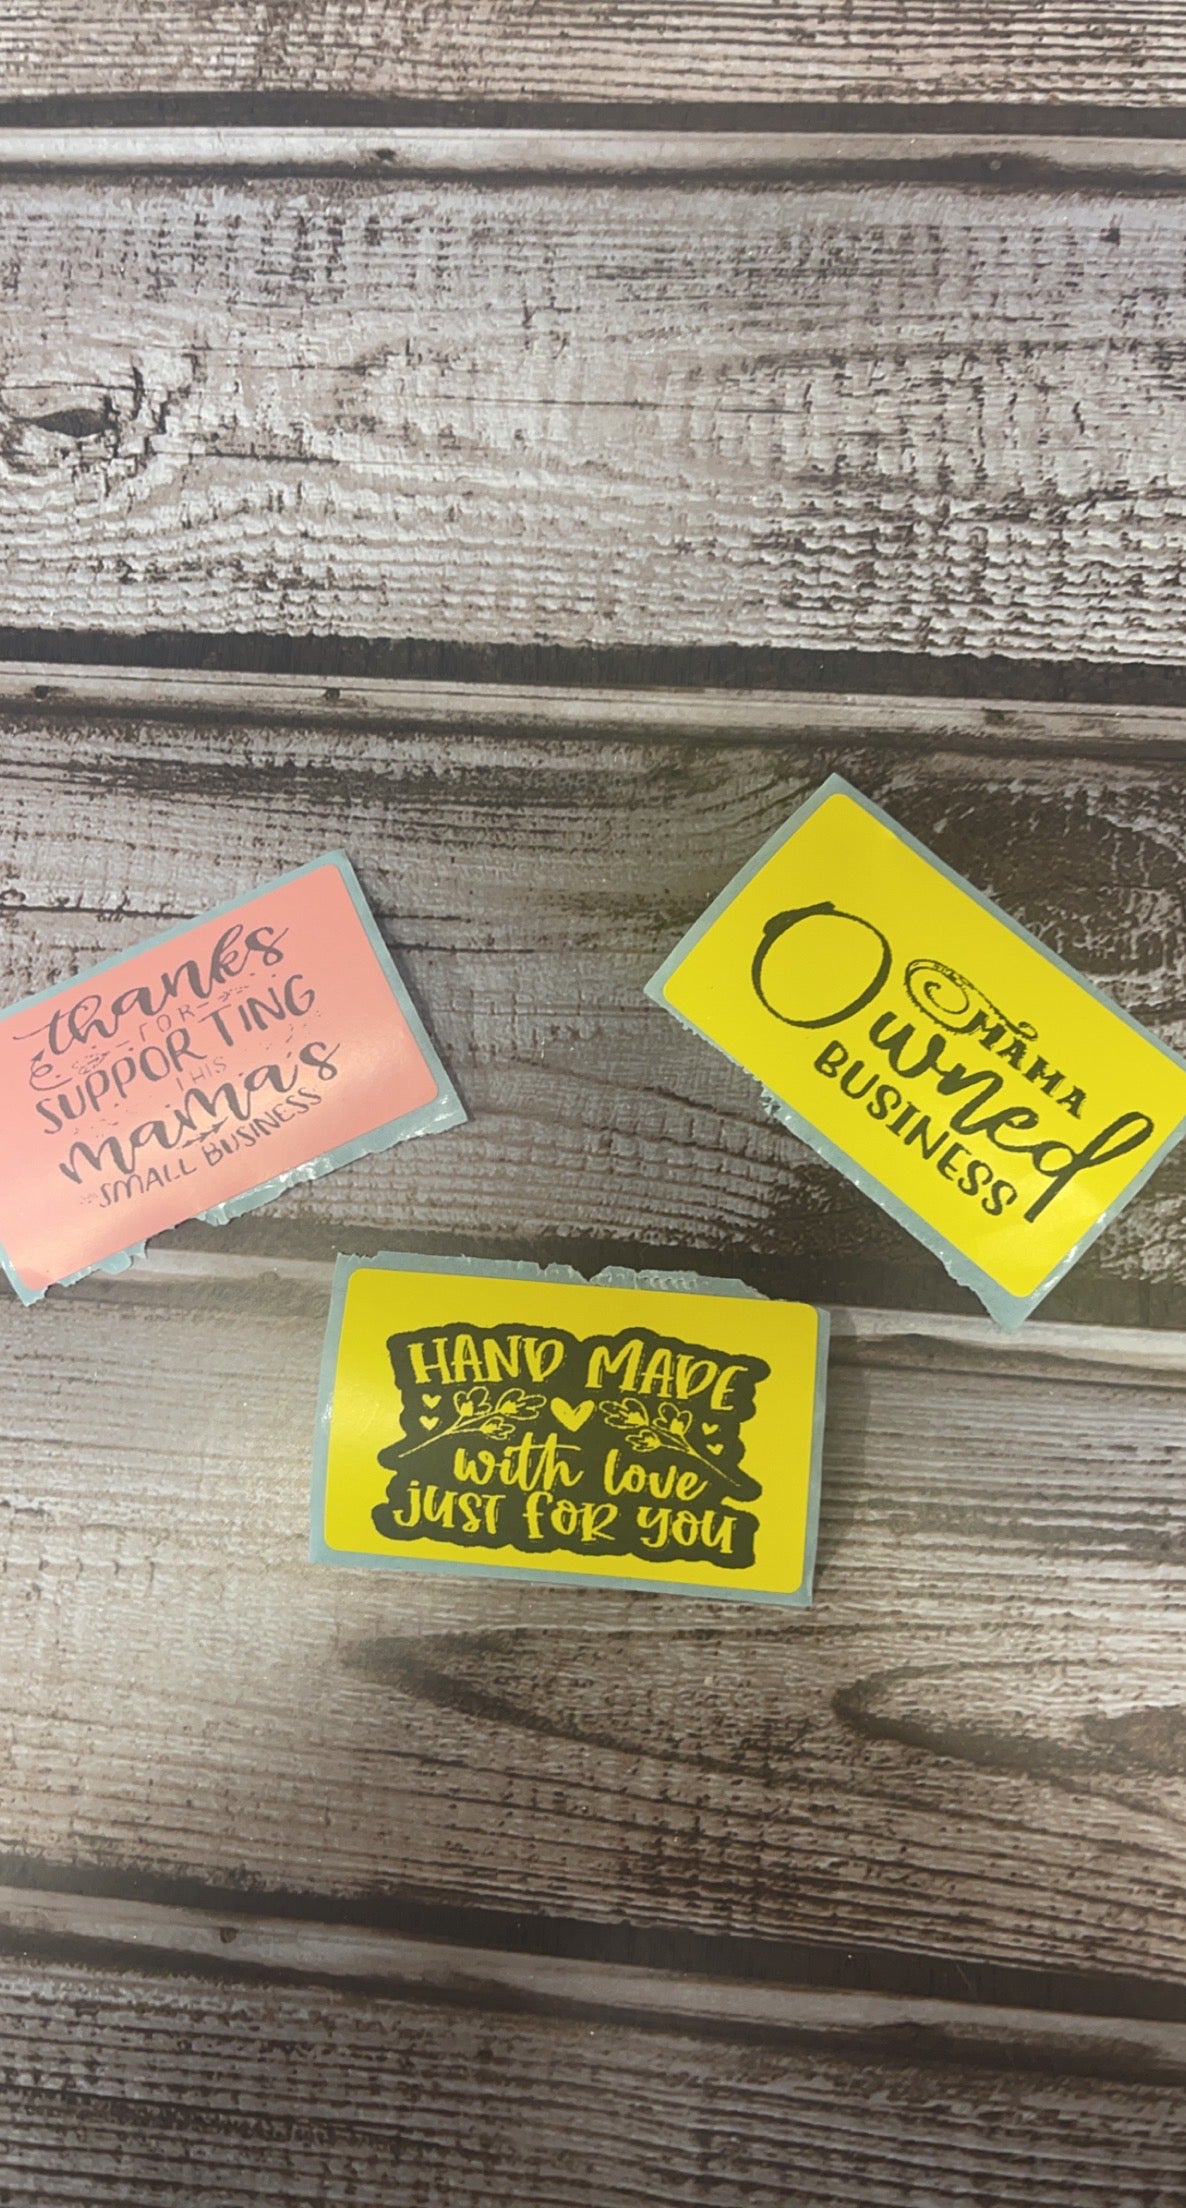 thanks
FOR
SUPPORTING
THIS
mama's
SMALL BUSINESS
MAMA
Owned
BUSINESS
HAND MADE
with love
JUST FOR YOU